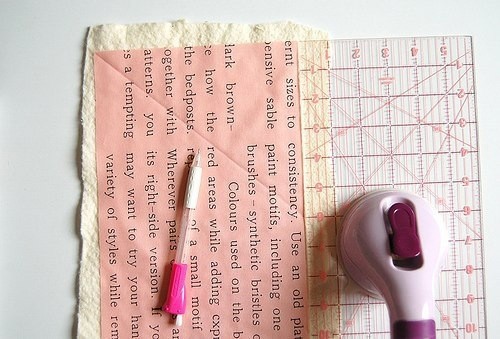 ernt sizes to
ensive sable
lark brown–
e how the
the bedposts.
ogether with
atterns. you
s a tempting
consistency. Use an old plat
paint motifs, including one
brushes – synthetic bristles o
Colours used on the b
red areas while adding exp
of a small motif
Wherever pairs
its right-side version.
may want to try your han
variety of styles while rem